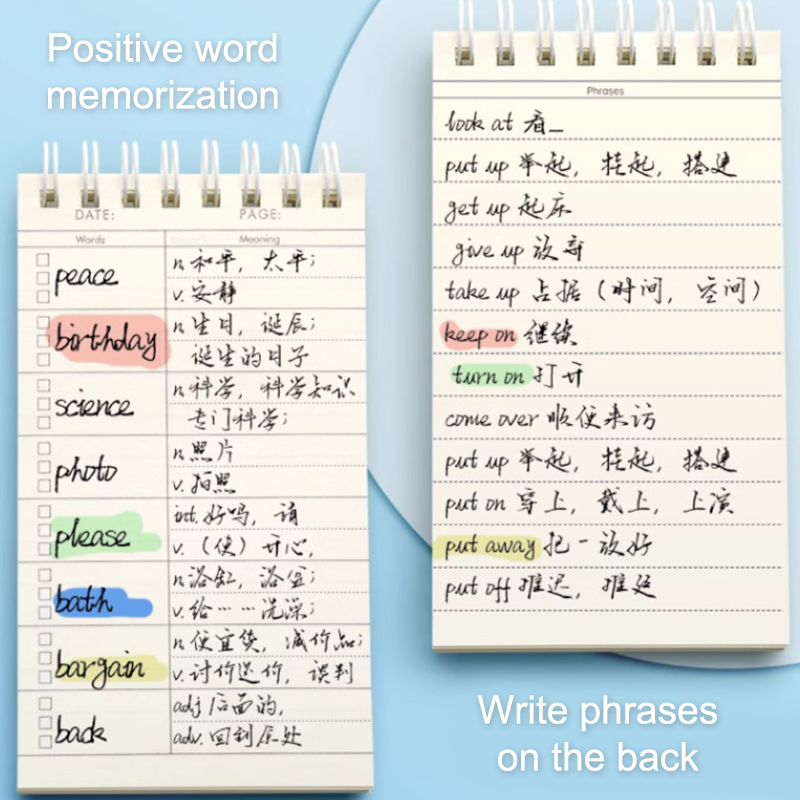 Positive word
memorization
DATE: PAGE:
Words Meaning
peace n. 和平, 太平;
v. 安静
birthday n 生日, 诞辰;
诞生的日子
science n 科学, 科学知识
专门科学;
photo n. 照片
v. 拍照
please int. 好吗, 请
v. (使) 开心,
bath n 浴缸, 浴室;
v. 给……洗澡;
bargain n 便宜货, 减价品;
v. 讨价还价,
back adj 后面的,
adv. 回到原处
Phrases
look at 看_
put up 举起, 挂起, 搭建
get up 起床
give up 放弃
take up 占据 (时间, 空间)
keep on 继续
turn on 打开
come over 顺便来访
put up 举起, 挂起, 搭建
put on 穿上, 戴上, 上演
put away 把一放好
put off 推迟, 推延
Write phrases
on the back